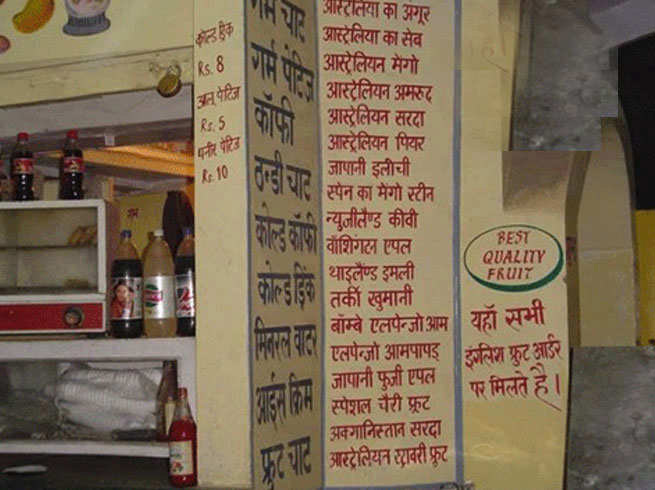 कोल्ड ड्रिंक
Rs. 8
आलू पेटिज
Rs. 5
पनीर पेटिज
Rs. 10
गर्म चाट
गर्म पेटिज़
कॉफी
ठन्डी चाट
कोल्ड कॉफी
कोल्ड ड्रिंक
मिनरल वाटर
आईस क्रिम
फ्रूट चाट
आस्ट्रेलिया का अंगूर
आस्ट्रेलिया का सेव
आस्ट्रेलियन मेंगो
आस्ट्रेलियन अमरूद
आस्ट्रेलियन सरदा
आस्ट्रेलियन पियर
जापानी इलीची
स्पेन का मेंगो स्टीन
न्यूजीलैण्ड कीवी
वाँशिगटन एपल
थाइलैण्ड इमली
तर्की खुमानी
बॉम्बे एलपेन्जो आम
एलपेन्जो आमपापड़
जापानी फुजी एपल
स्पेशल चैरी फ्रूट
अफ्गानिस्तान सरदा
आस्ट्रेलियन स्ट्राबरी फ्रूट
BEST
QUALITY
FRUIT
यहाँ सभी
इंगलिश फ्रुट आर्डर
पर मिलते है।